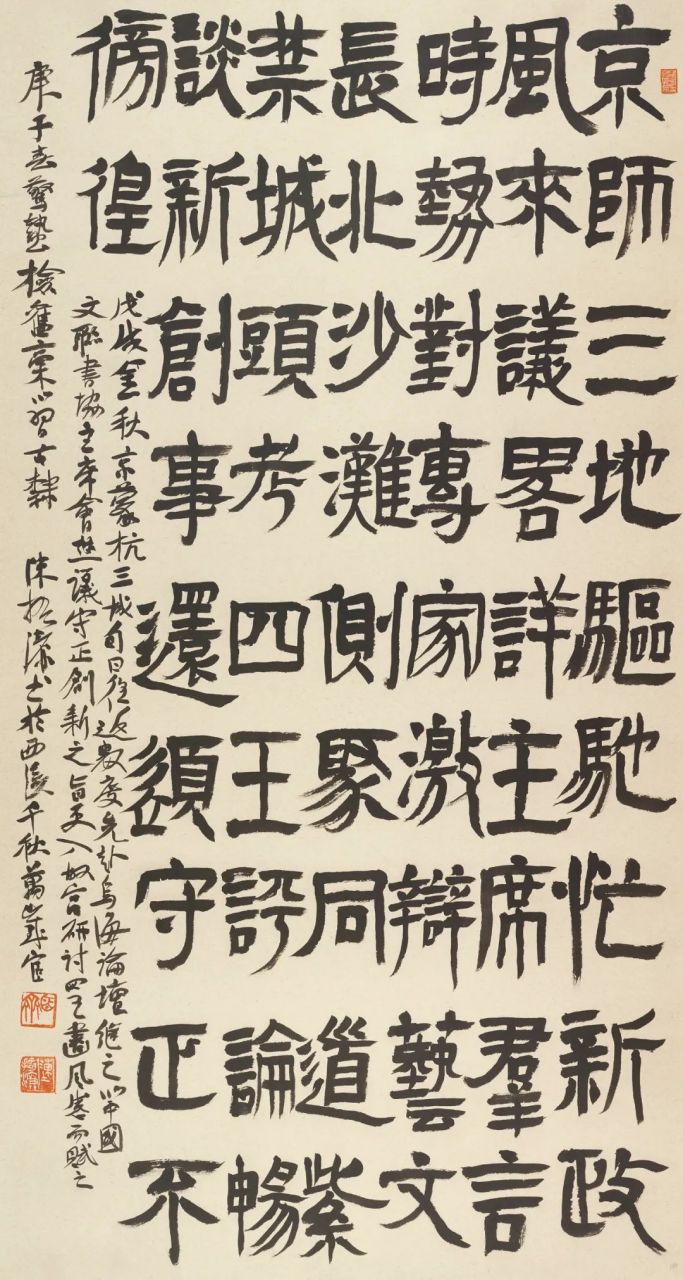 京師三地驅馳忙新政
風來議畧詳主席羣言
時勢對專家激辯藝文
長北沙灘側聚同道紫
禁城頭考四王評論暢
談新創事還須守正不
徬徨
戊戌金秋京蒙杭三城旬日往返數度先赴烏海論壇繼之以中國
文聯書協主席會世議守正創新之旨更入故宮研討四王畫風甚而賦之
庚子春驚蟄檢舊稿以習古隸 陳振濂書於西溪千秋萬歲室